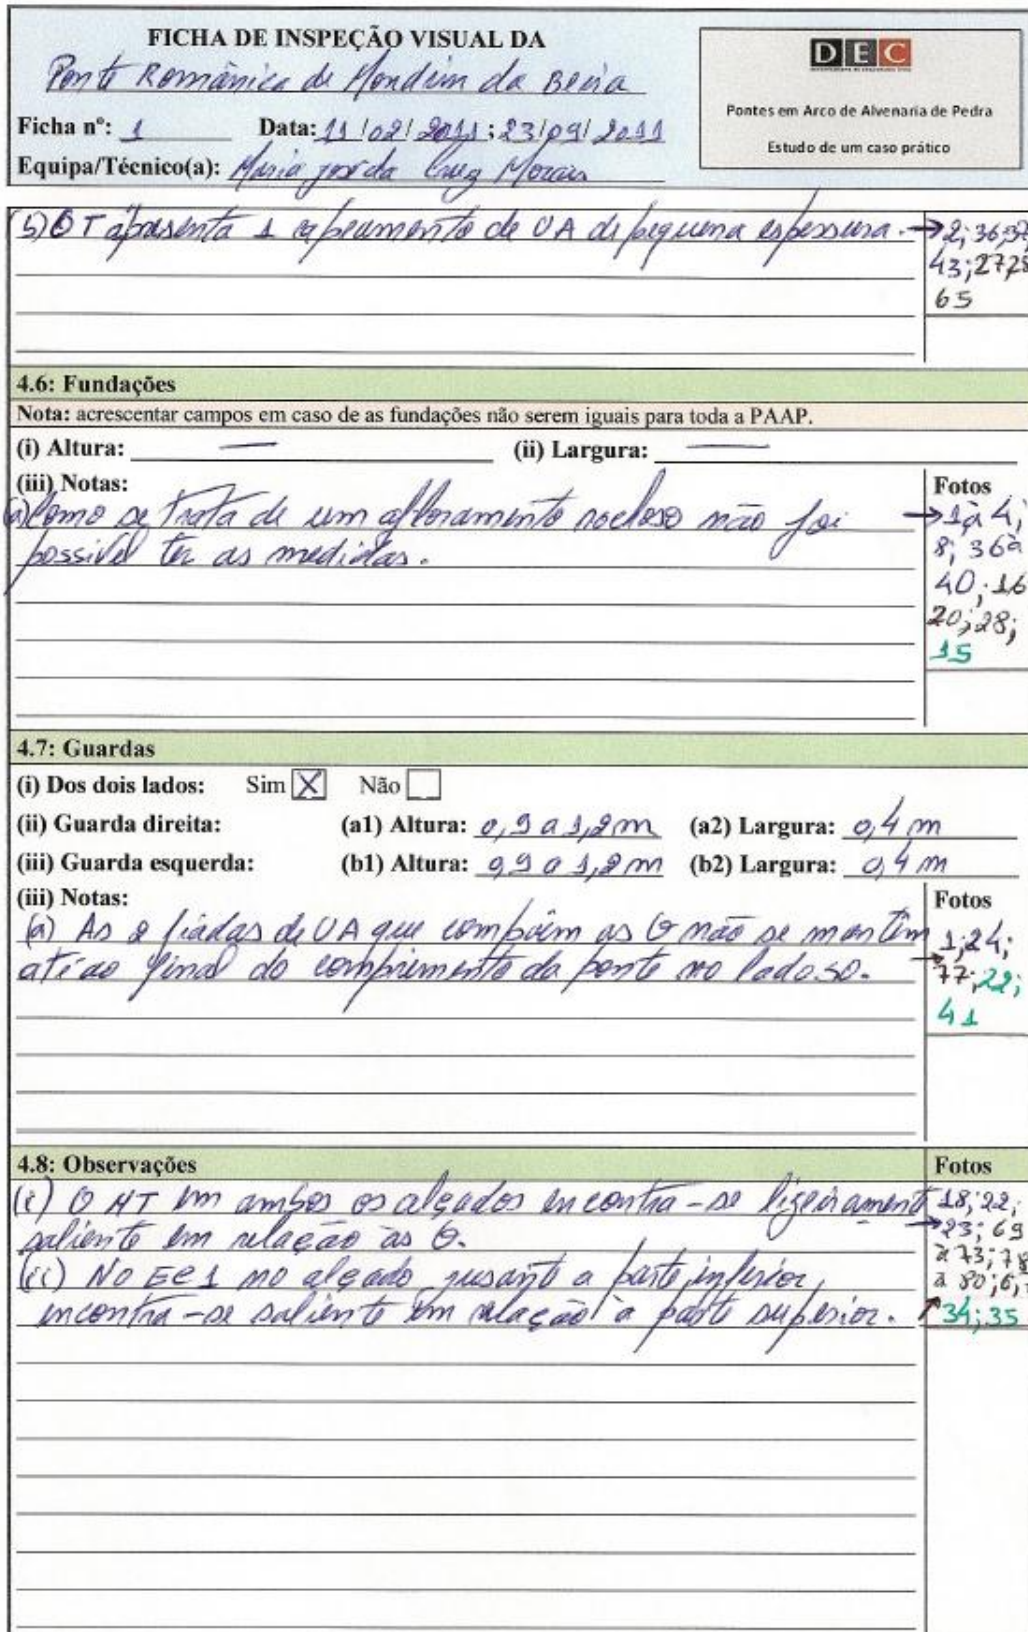 FICHA DE INSPEÇÃO VISUAL DA
Ponte Românica de Mondim da Beira
Ficha nº: 1 Data: 11/02/2011; 23/09/2011
Equipa/Técnico(a): Maria José da Cruz Morais
DEC
Pontes em Arco de Alvenaria de Pedra
Estudo de um caso prático
5) O T apresenta 1 capeamento de UA de pequena espessura. → 2; 36; 37
43; 27; 28
65
4.6: Fundações
Nota: acrescentar campos em caso de as fundações não serem iguais para toda a PAAP.
(i) Altura: — (ii) Largura: —
(iii) Notas: Fotos
(a) Como se trata de um afloramento rochoso não foi → 1 à 4;
possível ter as medidas. 8; 36 à
40; 16
20; 28;
15
4.7: Guardas
(i) Dos dois lados: Sim X Não
(ii) Guarda direita: (a1) Altura: 0,9 a 1,2 m (a2) Largura: 0,4 m
(iii) Guarda esquerda: (b1) Altura: 0,9 a 1,2 m (b2) Largura: 0,4 m
(iii) Notas: Fotos
(a) As 2 fiadas de UA que compõem as G não se mantêm 1; 24;
até ao final do comprimento da ponte no lado SO. → 77; 22;
41
4.8: Observações Fotos
(i) O MT em ambos os alçados encontra-se ligeiramente 18; 22;
saliente em relação às G. → 23; 69
a 73; 78
(ii) No EC1 no alçado jusante a parte inferior, a 80; 6;
encontra-se saliente em relação à parte superior. 34; 35